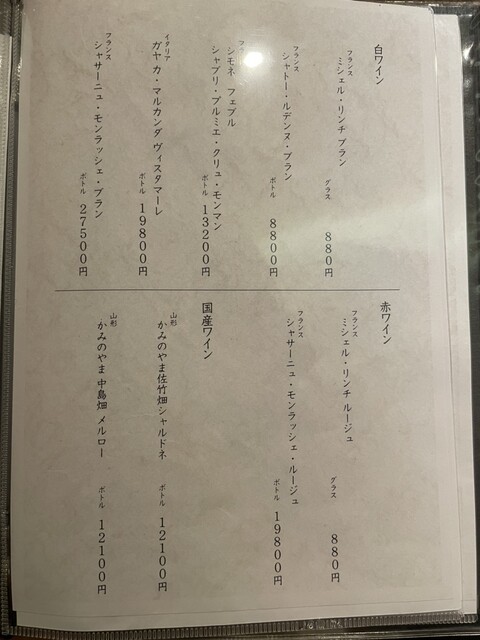 白ワイン
フランス
ミシェル・リンチ ブラン
グラス 880円
フランス
シャトー・ルデンヌ・ブラン
ボトル 8800円
シモネ フェブル
シャブリ・プルミエ・クリュ・モンマン
ボトル 13200円
イタリア
ガヤ カ・マルカンダ ヴィスタマーレ
ボトル 19800円
フランス
シャサーニュ・モンラッシェ・ブラン
ボトル 27500円
赤ワイン
フランス
ミシェル・リンチ ルージュ
グラス 880円
フランス
シャサーニュ・モンラッシェ・ルージュ
ボトル 19800円
国産ワイン
山形
かみのやま佐竹畑シャルドネ
ボトル 12100円
山形
かみのやま 中島畑 メルロー
ボトル 12100円